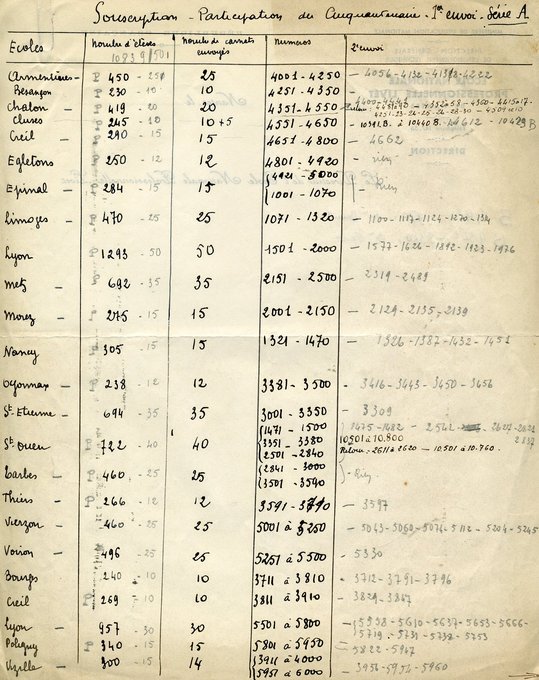 Souscription - Participation du Cinquantenaire - 1er envoi - Série A
Ecoles Nombre d'élèves Nombre de carnets envoyés Numéros 2e envoi
10839/501
Armentières - 450 - 25 25 4001 - 4250 - 4056 - 4132 - 4222
Besançon 230 - 10 10 4251 - 4350
Chalon - 419 - 20 20 4351 - 4550
Cluses 245 - 10 10 + 5 4551 - 4650 10391 B. à 10440 B. - 4612 - 10429 B
Creil - 290 - 15 15 4651 - 4800 - 4662
Egletons 250 - 12 12 4801 - 4920 - Rien
Epinal - 284 - 15 15 4921 - 5000 - Rien
1001 - 1070
Limoges - 470 - 25 25 1071 - 1320 - 1100 - 1117 - 1124 - 1270 - 1314
Lyon 1293 - 50 50 1501 - 2000 - 1577 - 1626 - 1892 - 1923 - 1976
Metz - 692 - 35 35 2151 - 2500 - 2319 - 2489
Morez - 275 - 15 15 2001 - 2150 - 2129 - 2135 - 2139
Nancy - 305 - 15 15 1321 - 1470 - 1326 - 1387 - 1432 - 1451
Oyonnax - 238 - 12 12 3381 - 3500 - 3416 - 3443 - 3450 - 3456
St. Etienne - 694 - 35 35 3001 - 3350 - 3309
1471 - 1500 1475 - 1482
St. Ouen 722 - 40 40 3351 - 3380 10.501 à 10.800
2501 - 2840 Retour - 2611 à 2620 - 10.501 à 10.760.
2841 - 3000
Tarbes - 460 - 25 25 3501 - 3590 - Rien
Thiers - 266 - 12 12 3591 - - 3597
Vierzon - 460 - 25 25 5001 à 5250 - 5043 - 5060 - 5074 - 5112 - 5204 - 5245
Voiron - 496 - 25 25 5251 à 5500 - 5330
Bourges - 240 - 10 10 3711 à 3810 - 3712 - 3791 - 3796
Creil - 269 - 10 10 3811 à 3910 - 3829 - 3847
Lyon - 957 - 30 30 5501 à 5800 - 5538 - 5610 - 5637 - 5653 - 5666 -
5719 - 5731 - 5738 - 5753
Poligny - 340 - 15 15 5801 à 5950 - 5822 - 5947
Vizille - 300 - 15 14 3911 à 4000 - 3956 - 5954 - 5960
5951 à 6000